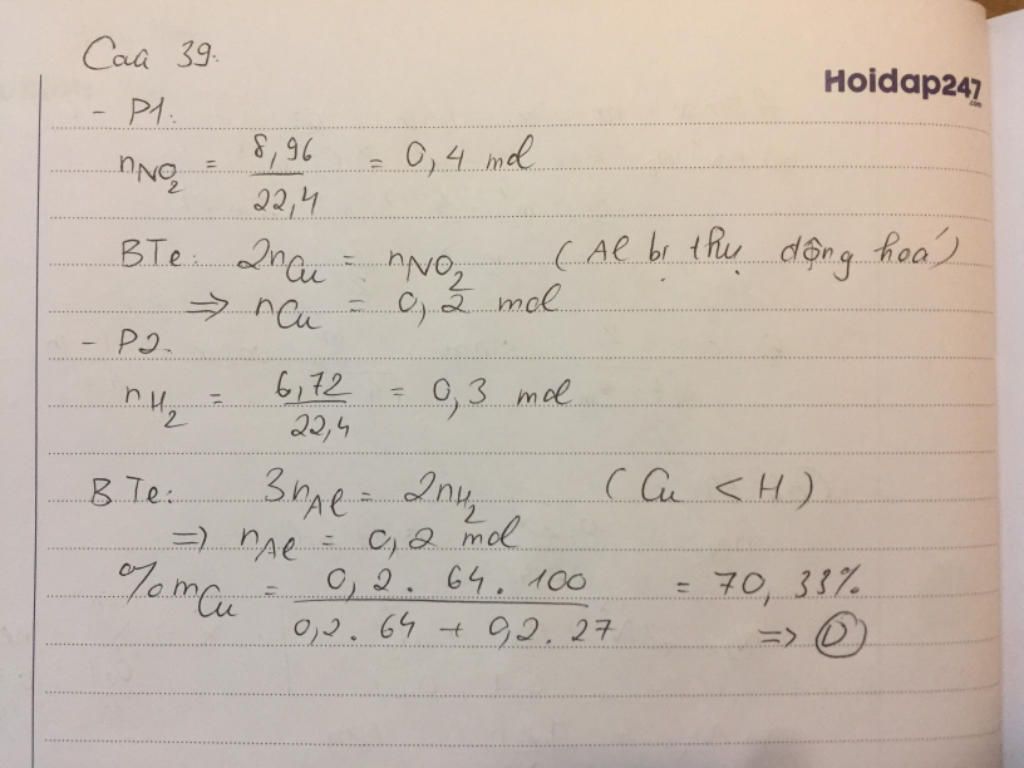 Câu 39:
Hoidap247
.com
- P1:
nNO2 = 8,96 / 22,4 = 0,4 mol
BTe: 2nCu = nNO2 (Al bị thụ động hoá)
=> nCu = 0,2 mol
- P2.
nH2 = 6,72 / 22,4 = 0,3 mol
BTe: 3nAl = 2nH2 (Cu < H)
=> nAl = 0,2 mol
%mCu = 0,2 . 64 . 100 / 0,2 . 64 + 0,2 . 27 = 70,33%
=> D